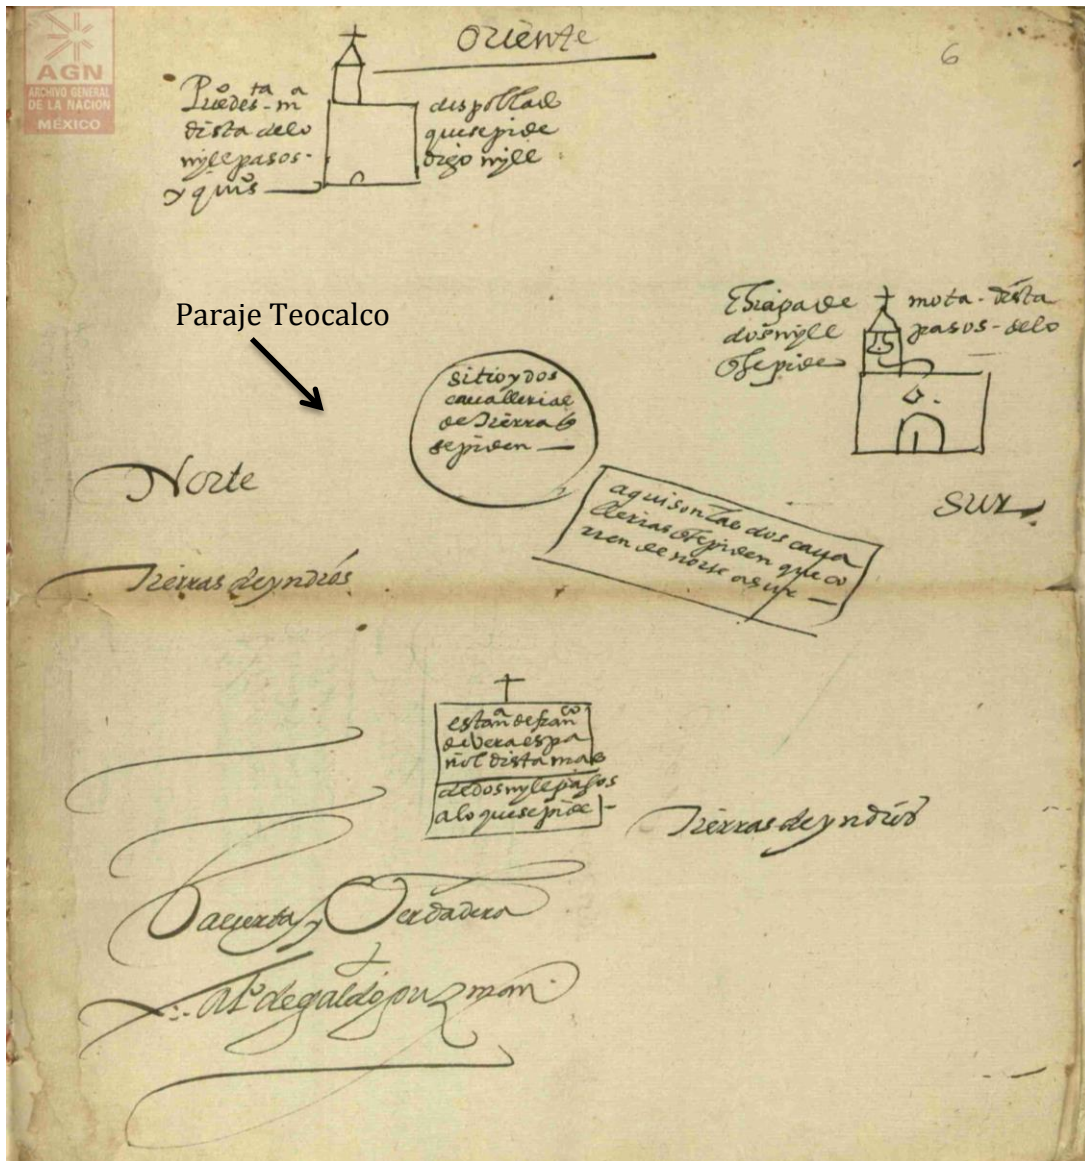 AGN
ARCHIVO GENERAL
DE LA NACION
MÉXICO
oriente
6
Pº
dista de lo
myll pasos
despoblad
que se pide
digo myll
Paraje Teocalco
mota dista
dos myll
pasos de lo
q se pide
sitio y dos
cauallerias
de tierra q
se piden
Norte
sur
aqui son las dos caua
llerias q se piden que co
rren de norte a sur
Tierras de yndios
estanª de franco
de Vera espa
ñol dista mas
de dos myll pasos
a lo que se pide
Tierras de yndios
Va cierta y Verdadera